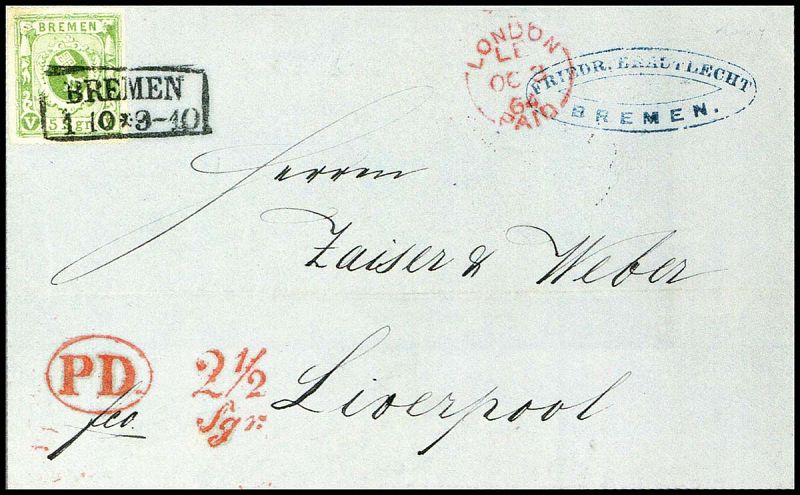 BREMEN
V 5 Sgr.
BREMEN
1 10 * 9-10
LONDON
OC
64
PAID
FRIEDR. ERAUTLECHT
BREMEN.
Herren
Zaiser & Weber
Liverpool
PD
fco.
2 1/2
Sgr.